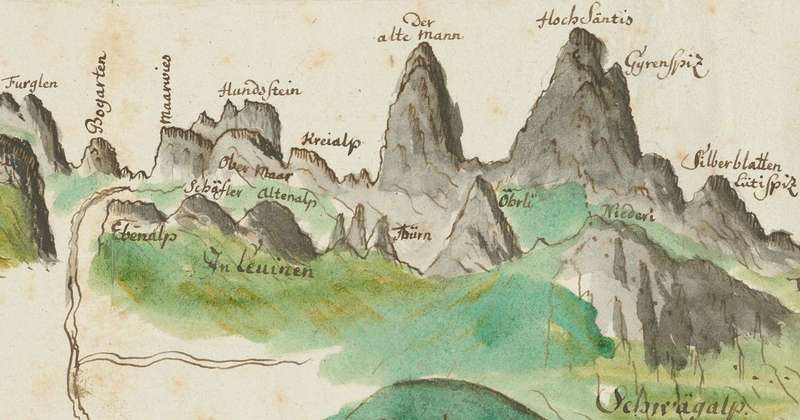 Der
alte Mann
Hoch Säntis
Gyrenspiz
Furglen
Bogarten
Maarwies
Hundstein
Kreialp
Ober Maar
Silberblatten
Lütispiz
Schäfler
Altenalp
Öhrli
Niederi
Ebenalp
Thürn
In Leuinen
Schwägalp.